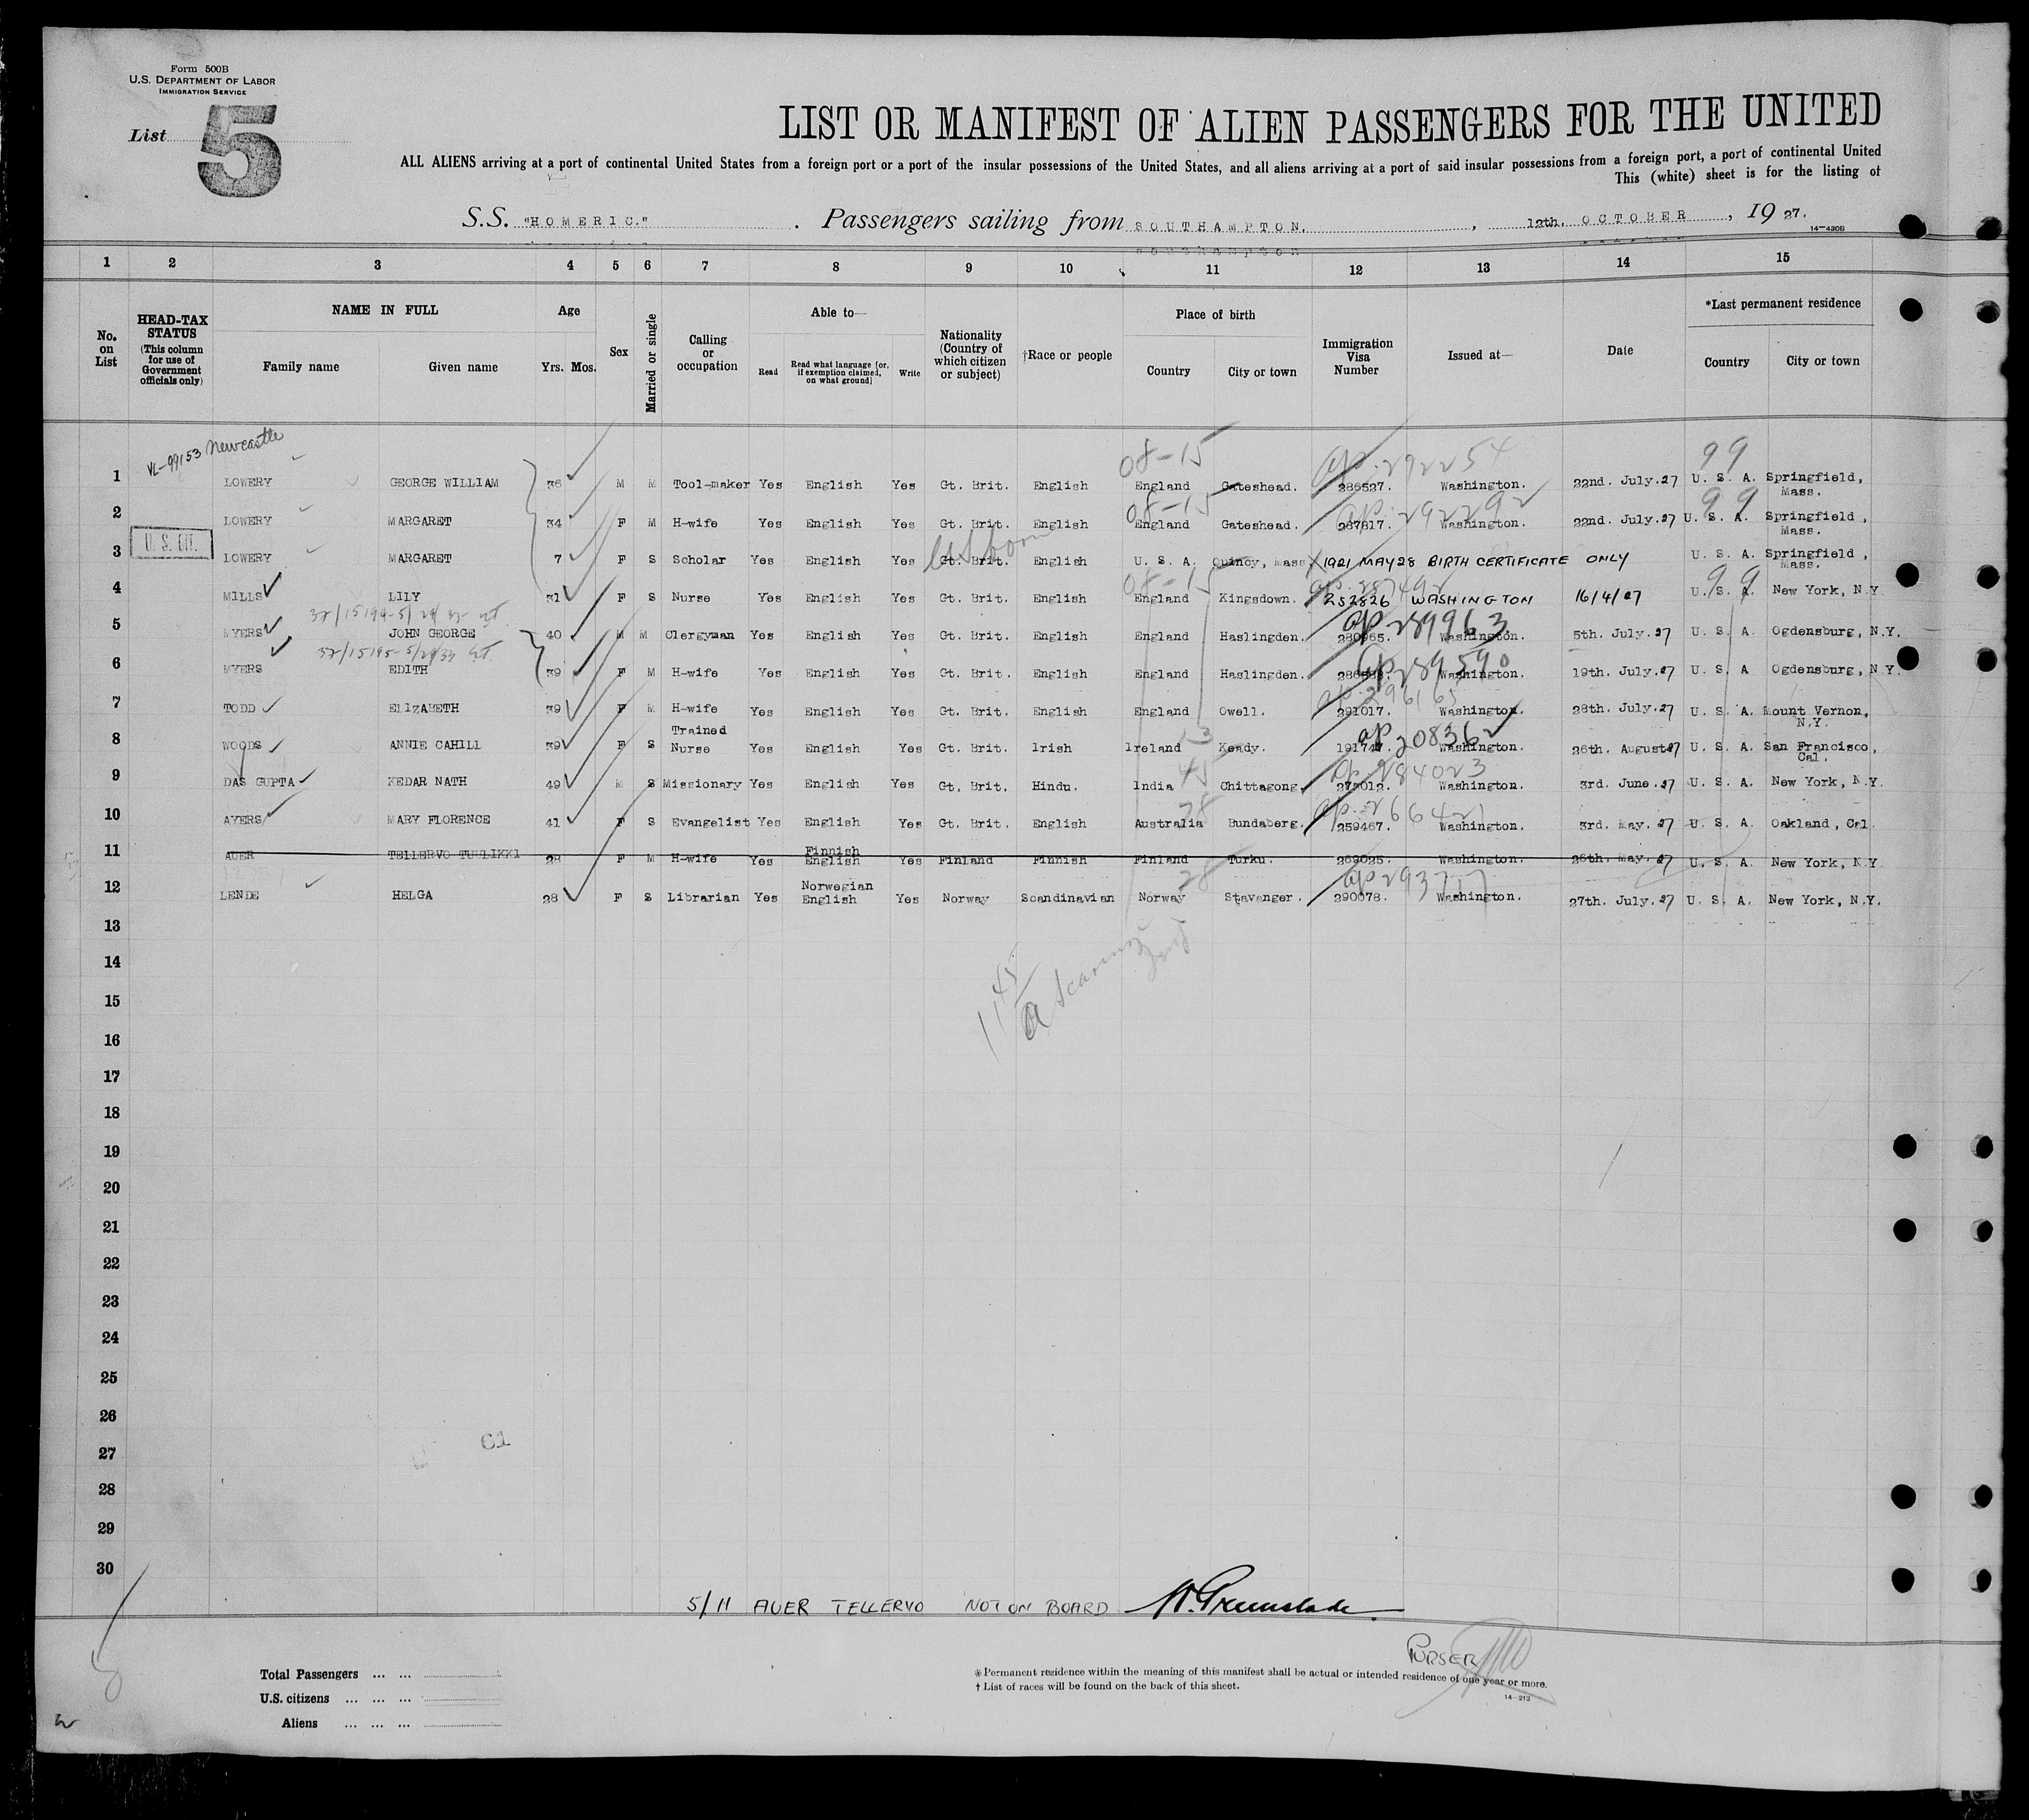 Form 500B
U.S. DEPARTMENT OF LABOR
IMMIGRATION SERVICE
List 5
LIST OR MANIFEST OF ALIEN PASSENGERS FOR THE UNITED
ALL ALIENS arriving at a port of continental United States from a foreign port or a port of the insular possessions of the United States, and all aliens arriving at a port of said insular possessions from a foreign port, a port of continental United
This (white) sheet is for the listing of
S.S. "HOMERIC." Passengers sailing from SOUTHAMPTON, 12th. OCTOBER, 1927.
14-430B
1 2 3 4 5 6 7 8 9 10 11 12 13 14 15
No. on List
HEAD-TAX STATUS (This column for use of Government officials only)
NAME IN FULL
Family name Given name
Age
Yrs. Mos.
Sex
Married or single
Calling or occupation
Able to—
Read Read what language [or, if exemption claimed, on what ground] Write
Nationality (Country of which citizen or subject)
†Race or people
Place of birth
Country City or town
Immigration Visa Number
Issued at—
Date
*Last permanent residence
Country City or town
VL-99153 Newcastle 08-15 ap. 292254 99
1 LOWERY GEORGE WILLIAM 36 M M Tool-maker Yes English Yes Gt. Brit. English England Gateshead. 286527. Washington. 22nd. July.27 U. S. A. Springfield, Mass.
08-15 ap. 292292 99
2 LOWERY MARGARET 34 F M H-wife Yes English Yes Gt. Brit. English England Gateshead. 287817. Washington. 22nd. July.27 U. S. A. Springfield, Mass.
U. S. CIT. US born
3 LOWERY MARGARET 7 F S Scholar Yes English Yes Gt. Brit. English U. S. A. Quincy, Mass 1921 MAY 28 BIRTH CERTIFICATE ONLY U. S. A. Springfield, Mass.
08-15 99
4 MILLS LILY 31 F S Nurse Yes English Yes Gt. Brit. English England Kingsdown. 252826 WASHINGTON 16/4/27 U. S. A. New York, N.Y.
ap 289963
5 MYERS JOHN GEORGE 40 M M Clergyman Yes English Yes Gt. Brit. English England Haslingden. 280965. Washington. 5th. July.27 U. S. A. Ogdensburg, N.Y.
ap 289590
6 MYERS EDITH 39 F M H-wife Yes English Yes Gt. Brit. English England Haslingden. Washington. 19th. July.27 U. S. A Ogdensburg, N Y.
7 TODD ELIZABETH 39 F M H-wife Yes English Yes Gt. Brit. English England Owell. 291017. Washington. 28th. July.27 U. S. A. Mount Vernon, N.Y.
ap 208362
8 WOODS ANNIE CAHILL 39 F S Trained Nurse Yes English Yes Gt. Brit. Irish Ireland Keady. 191747. Washington. 26th. August27 U. S. A. San Francisco, Cal.
45 ap. 284023
9 DAS GUPTA KEDAR NATH 49 M S Missionary Yes English Yes Gt. Brit. Hindu. India Chittagong. 272012. Washington. 3rd. June.27 U. S. A. New York, N.Y.
10 AYERS MARY FLORENCE 41 F S Evangelist Yes English Yes Gt. Brit. English Australia Bundaberg. 259467. Washington. 3rd. May.27 U. S. A. Oakland, Cal.
11 AUER TELLERVO TUULIKKI 28 F M H-wife Yes Finnish English Yes Finland Finnish Finland Turku. 269025. Washington. 26th. May.27 U. S. A. New York, N.Y
28 ap 293717
12 LENDE HELGA 28 F S Librarian Yes Norwegian English Yes Norway Scandinavian Norway Stavanger. 290078. Washington. 27th. July.27 U. S. A. New York, N.Y.
13
14
15
16
17
18
19
20
21
22
23
24
25
26
27
61
28
29
30
5/11 AUER TELLERVO NOT ON BOARD W. Greenslade.
PURSER
Total Passengers ... ...
U.S. citizens ... ... ...
Aliens ... ... ...
* Permanent residence within the meaning of this manifest shall be actual or intended residence of one year or more.
† List of races will be found on the back of this sheet.
14-213